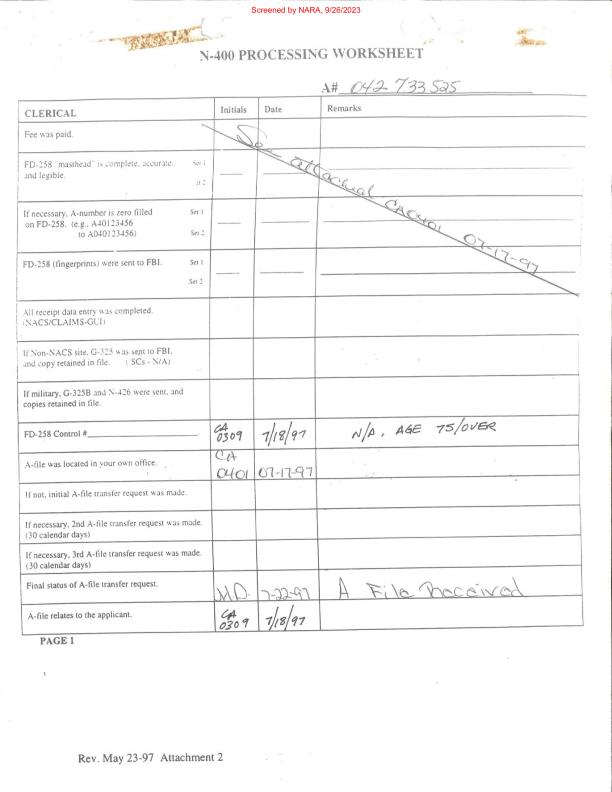 Screened by NARA, 9/26/2023
N-400 PROCESSING WORKSHEET
A# 042 733 525
CLERICAL Initials Date Remarks
Fee was paid.
See attached CA0401 07-17-97
FD-258 "masthead" is complete, accurate, Set 1
and legible.
If necessary, A-number is zero filled Set 1
on FD-258. (e.g., A40123456
to A040123456) Set 2
FD-258 (fingerprints) were sent to FBI. Set 1
Set 2
All receipt data entry was completed.
(NACS/CLAIMS-GUI)
If Non-NACS site, G-325 was sent to FBI,
and copy retained in file. ( SCs - N/A)
If military, G-325B and N-426 were sent, and
copies retained in file.
FD-258 Control # CA 0309 7/18/97 N/A, AGE 75/OVER
A-file was located in your own office. CA 0401 07-17-97
If not, initial A-file transfer request was made.
If necessary, 2nd A-file transfer request was made.
(30 calendar days)
If necessary, 3rd A-file transfer request was made.
(30 calendar days)
Final status of A-file transfer request. M.D. 7-22-97 A File Received
A-file relates to the applicant. CA 0309 7/18/97
PAGE 1
Rev. May 23-97 Attachment 2